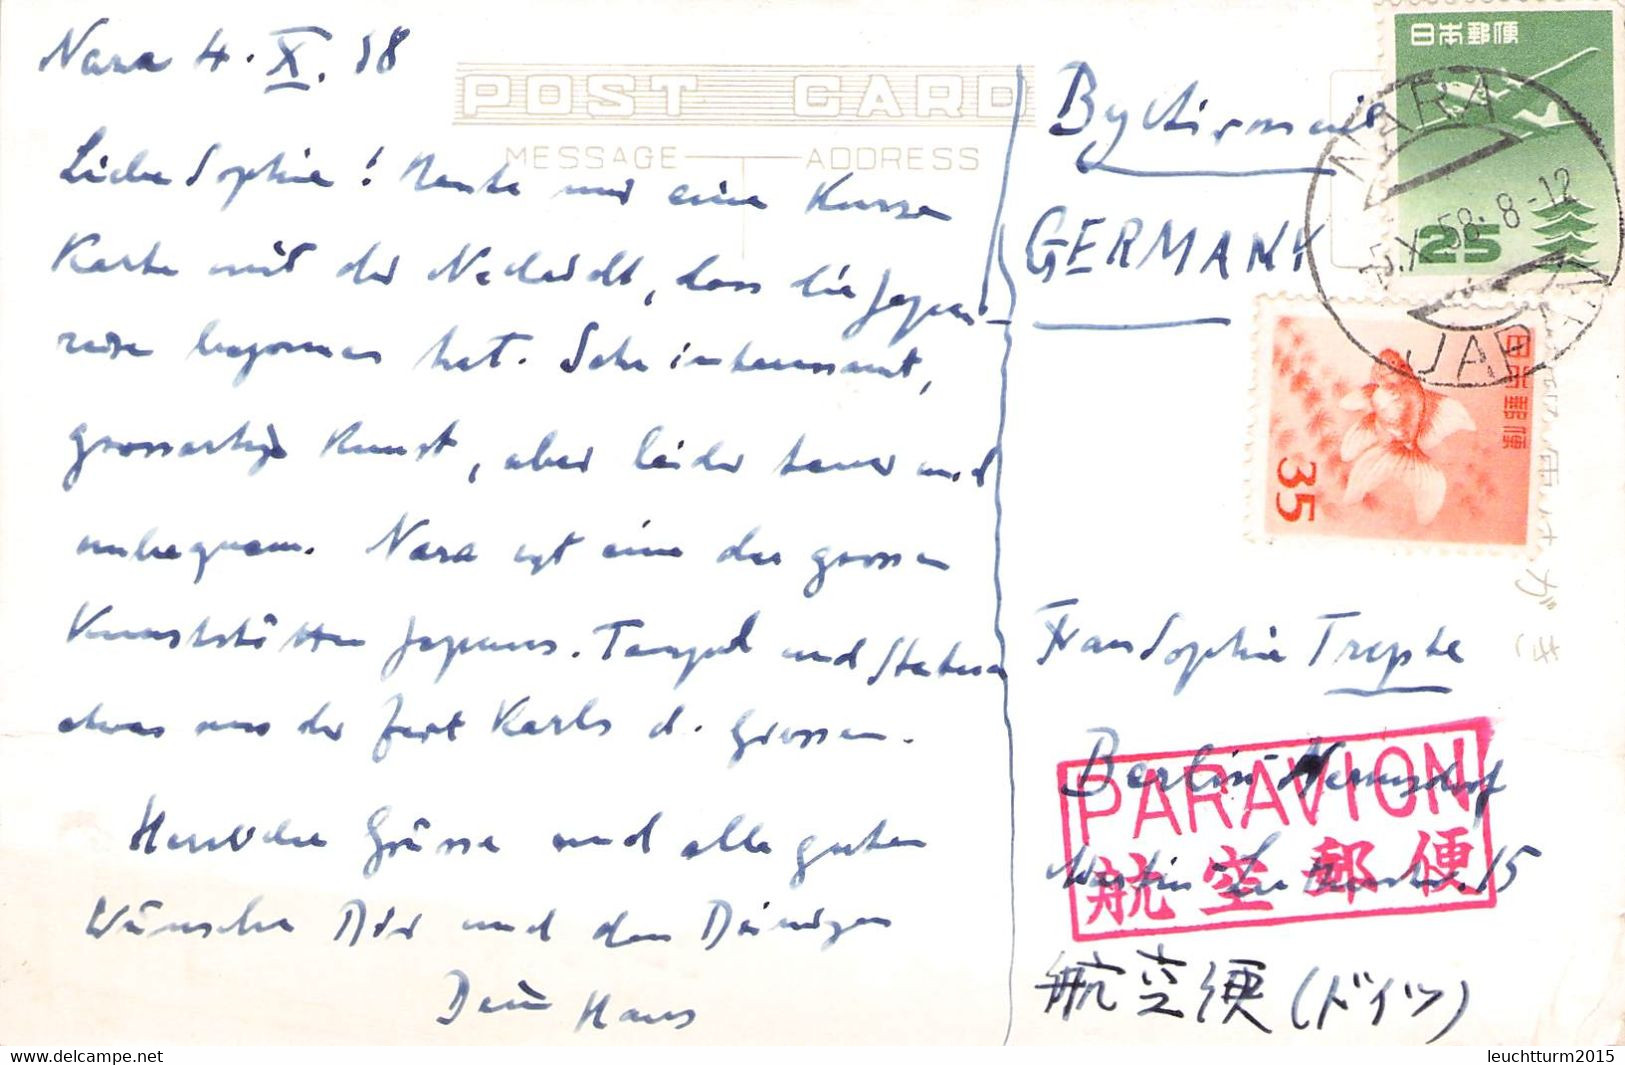 Nara 4. X. 58
Liebe Sophie! Heute nur eine kurze
Karte mit der Nachricht, dass die Japan-
reise begonnen hat. Sehr interessant,
grossartige Kunst, aber leider teuer und
unbequem. Nara ist eine der grossen
Kunststätten Japans. Tempel und Statuen
etwa aus der Zeit Karls d. Grossen.
Herzliche Grüsse und alle guten
Wünsche Dir und den Deinigen
Dein Hans
POST CARD
MESSAGE
ADDRESS
By Airmail
GERMANY
日本郵便
25
NARA
5.X.58.8-12
JAPAN
日本郵便
35
Frau Sophie Trepte
Berlin-Hermsdorf
Martin Luther 15
PARAVION
航空郵便
航空便(ドイツ)
leuchtturm2015